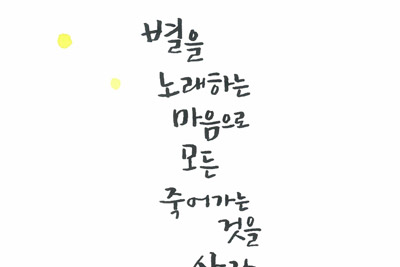 별을
노래하는
마음으로
모든
죽어가는
것을